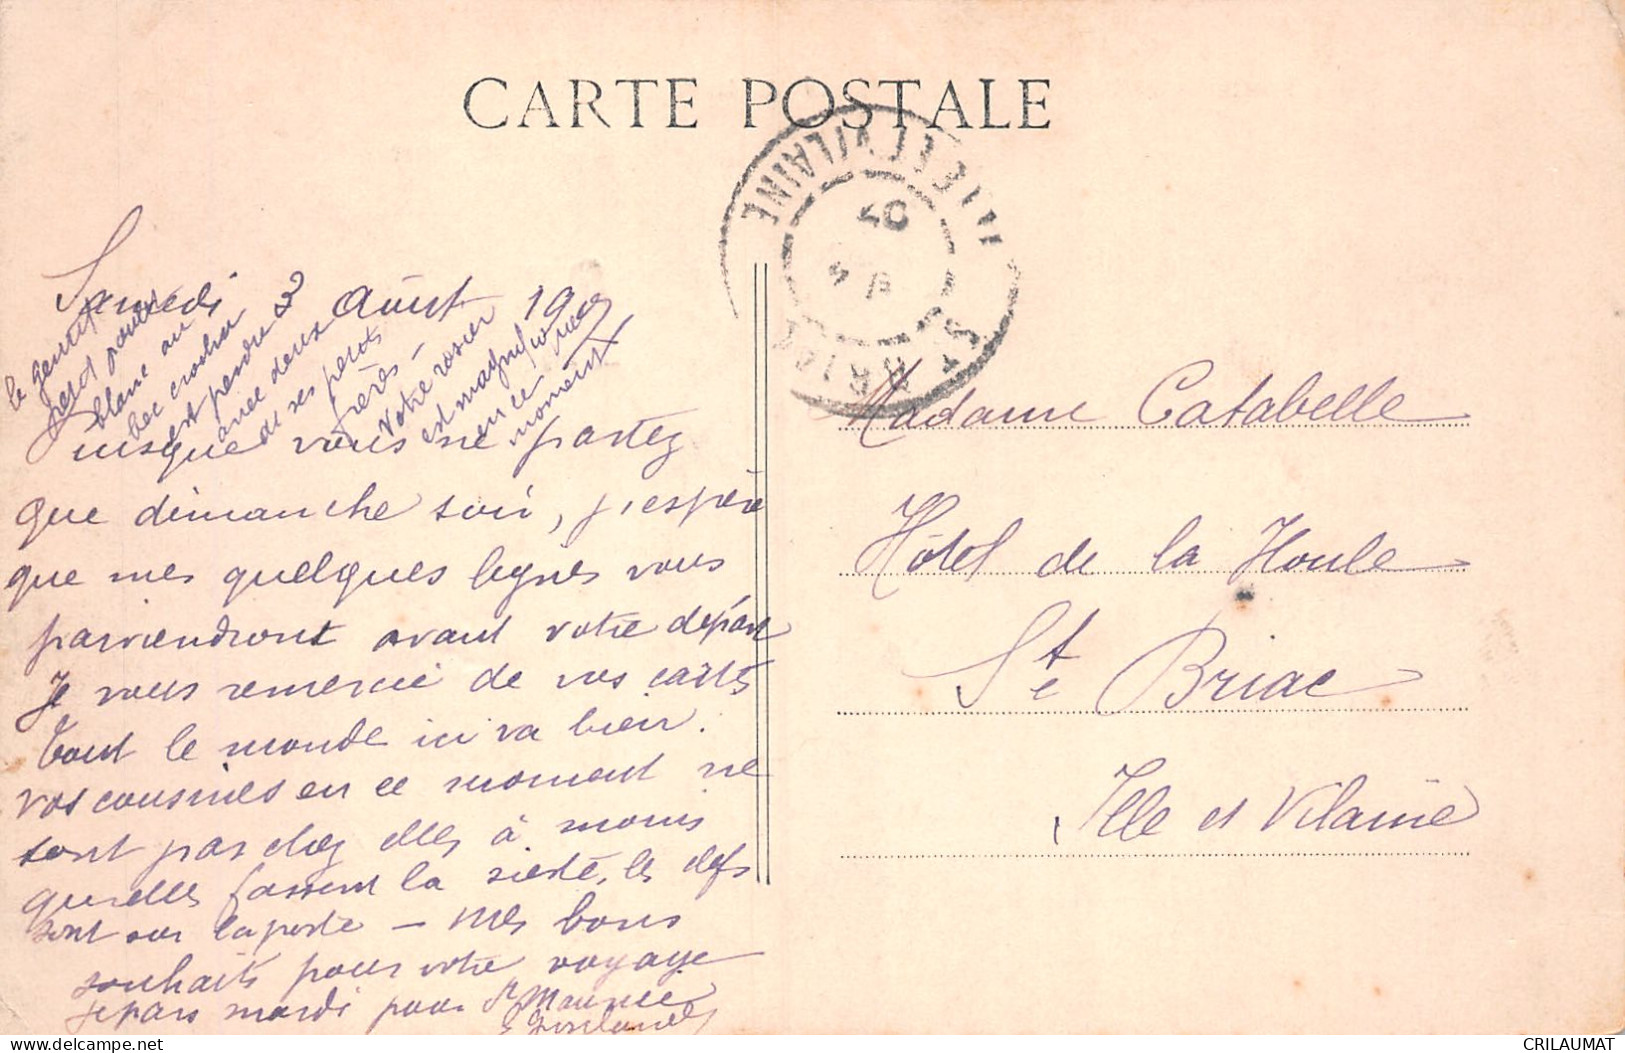 CARTE POSTALE
ILLE ET VILAINE
ST BRIAC
07
Samedi 3 Août 1907
le gentil
blanc au
bec crochu
est perdu
avec deux
de ses petits
frères -
Votre rosier
est magnifique
en ce
moment
Puisque vous ne partez
que dimanche soir, j'espère
que mes quelques lignes vous
parviendront avant votre départ
Je vous remercie de vos cartes
tout le monde ici va bien.
vos cousines en ce moment ne
sont pas chez elles à moins
qu'elles fassent la sieste, les clefs
sont sur la porte - mes bons
souhaits pour votre voyage
je pars mardi pour St Maurice
Madame Catabelle
Hôtel de la Houle
St Briac
Ille et Vilaine
CRILAUMAT